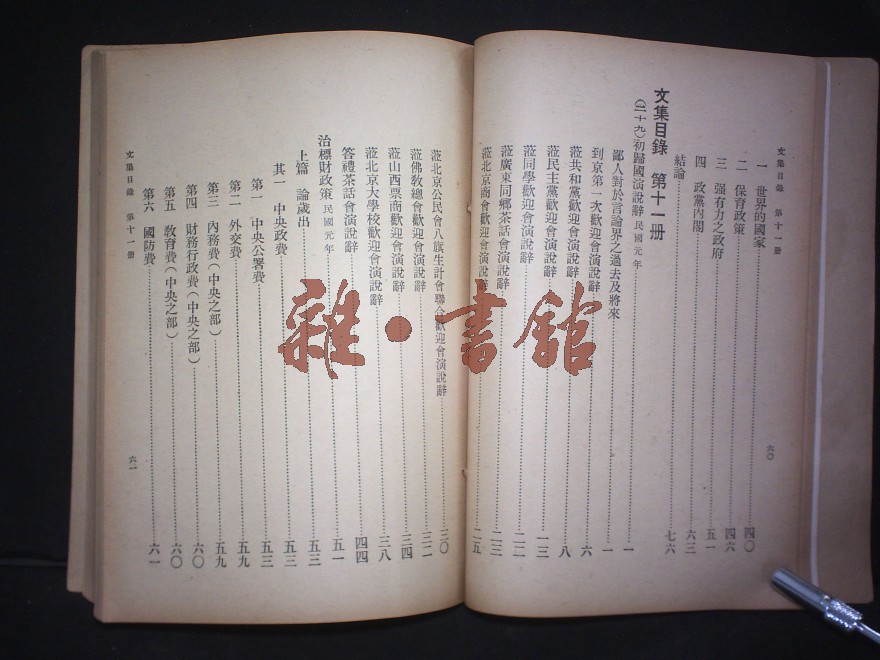 文集目錄 第十一册
六〇
一 世界的國家……四〇
二 保育政策……四六
三 强有力之政府……五一
四 政黨內閣……六三
結論……七六
文集目錄 第十一册
(二十九)初歸國演說辭 民國元年……一
鄙人對於言論界之過去及將來……一
到京第一次歡迎會演說辭……六
蒞共和黨歡迎會演說辭……八
蒞民主黨歡迎會演說辭……一三
蒞同學歡迎會演說辭……二二
蒞廣東同鄉茶話會演說辭……二三
蒞北京商會歡迎會演說辭……二五
蒞北京公民會八旗生計會聯合歡迎會演說辭……三〇
蒞佛教總會歡迎會演說辭……三二
蒞山西票商歡迎會演說辭……三四
蒞北京大學校歡迎會演說辭……三八
答禮茶話會演說辭……四四
治標財政策 民國元年……五一
上篇 論歲出……五三
其一 中央政費……五三
第一 中央公署費……五三
第二 外交費……五九
第三 內務費(中央之部)……五九
第四 財務行政費(中央之部)……六〇
第五 教育費(中央之部)……六〇
第六 國防費……六一
文集目錄 第十一册
六一
雜·書館